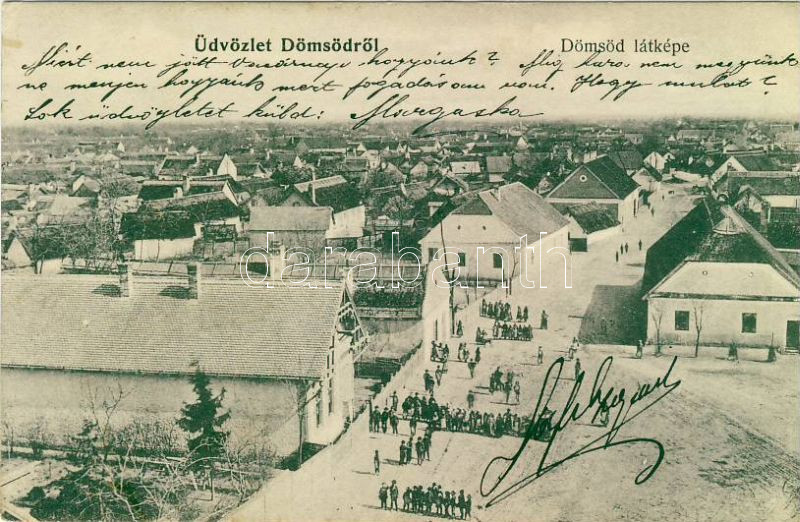 Üdvözlet Dömsödről
Dömsöd látképe
Miért nem jött Vasárnap hogyánk? Míg haza nem megyünk
ne menjen hozzánk mert fogadásom van. Hogy mulat?
Sok üdvözletet küld: Morgaska
darabanth